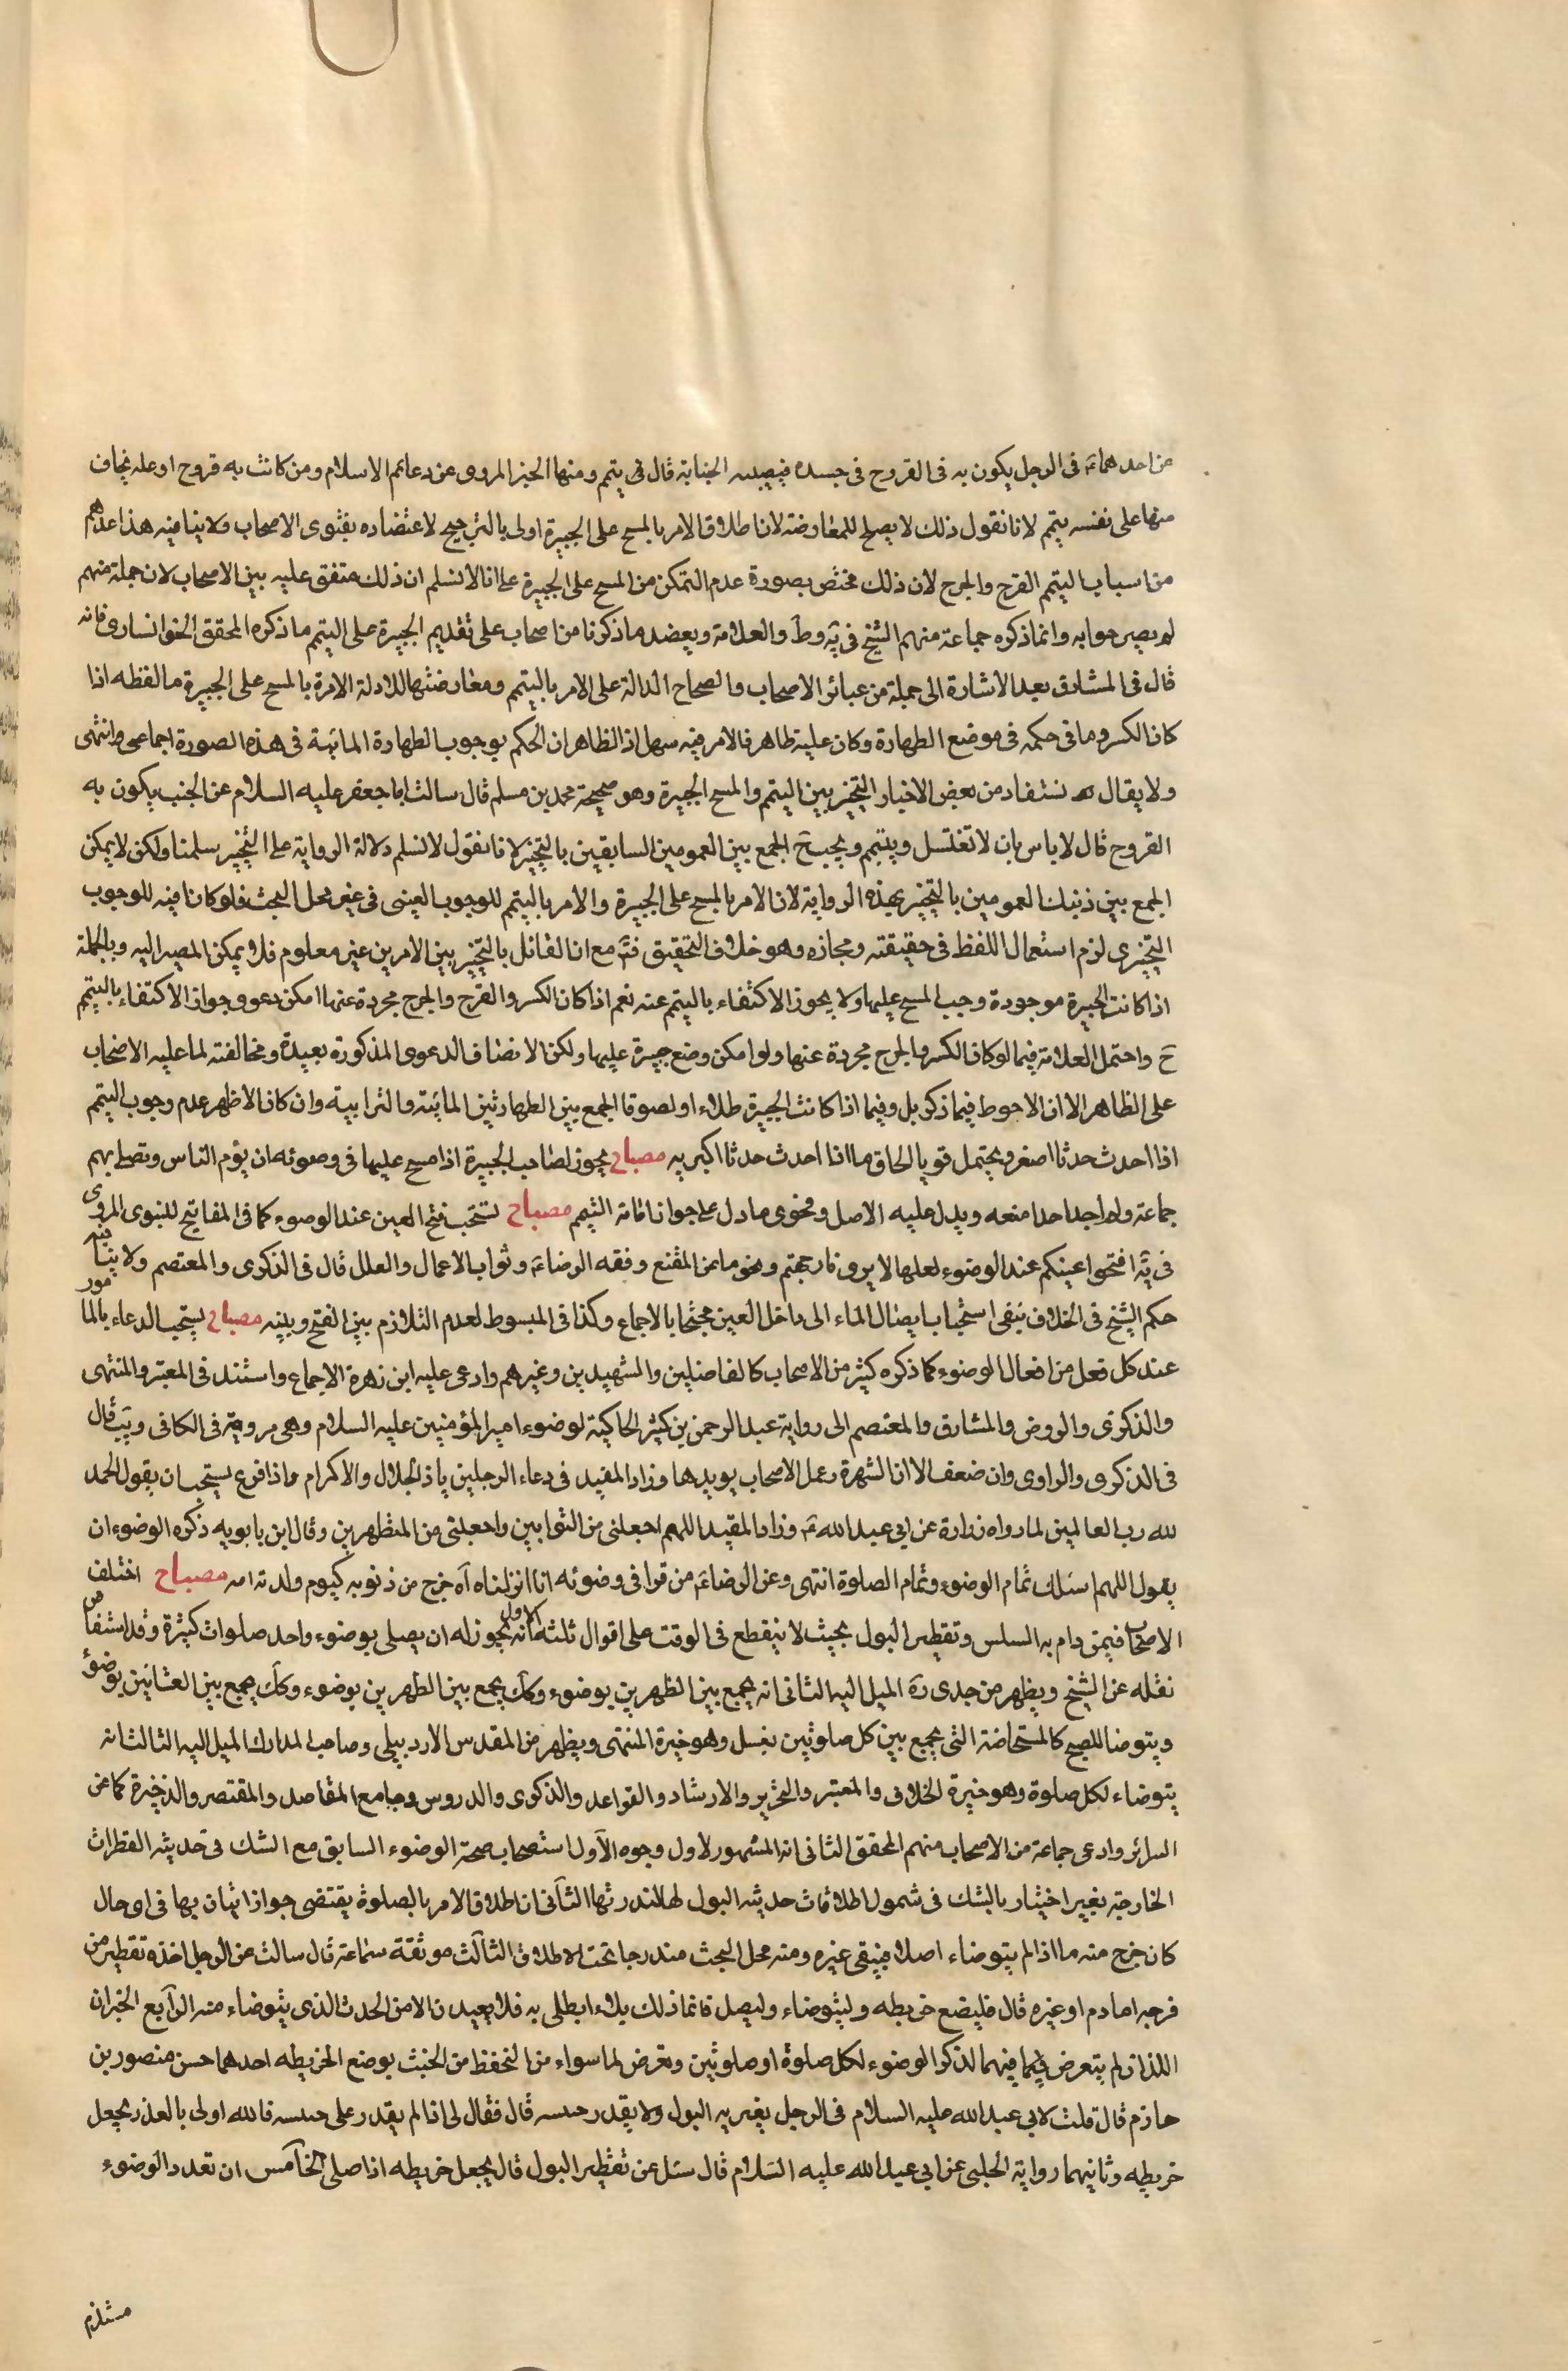 من احدهما ع‍ فى الرجل يكون به فى القروح فى جسده فيصيبه الجنابة قال ع‍ يتيمم ومنها الخبر المروى عن دعائم الاسلام ومن كانت به قروح او علة يخاف
منها على نفسه يتيمم لانا نقول ذلك لا يصلح للمعارضة لان اطلاق الامر بالمسح على الجبيرة اولى بالترجيح لاعتضاده بفتوى الاصحاب ولا ينافيه هذا عدهم
من اسباب التيمم القرح والجرح لان ذلك مختص بصورة عدم التمكن من المسح على الجبيرة على انا لا نسلم ان ذلك متفق عليه بين الاصحاب لان جملة منهم
لم يصرحوا به وانما ذكره جماعة منهم الشيخ فى يه وط والعلامة ويعضد ما ذكرنا من اصحاب على تقديم الجبيرة على التيمم ما ذكره المحقق الخوانسارى فانه
قال فى المشارق بعد الاشارة الى جملة من عبائر الاصحاب والصحاح الدالة على الامر بالتيمم ومعارضتها للادلة الامرة بالمسح على الجبيرة ما لفظه اذا
كان الكسر وما فى حكمه فى موضع الطهارة وكان عليه ظاهر فالامر فيه سهل اذ الظاهر ان الحكم بوجوب الطهارة المائية فى هذه الصورة اجماعى وانتهى
ولا يقال نستفاد من بعض الاخبار التخيير بين التيمم والمسح الجبيرة وهو صحيحة محمد بن مسلم قال سالت ابا جعفر عليه السلام عن الجنب يكون به
القروح قال لا باس بان لا تغتسل ويتيمم ويجب ح الجمع بين العمومين السابقين بالتخيير لانا نقول لا نسلم دلالة الرواية على التخيير سلمنا ولكن لا يمكن
الجمع بين ذينك العمومين بالتخيير بهذه الرواية لان الامر بالمسح على الجبيرة والامر بالتيمم للوجوب العينى فى غير محل البحث فلو كانا فيه للوجوب
التخيرى لزم استعمال اللفظ فى حقيقته ومجازه وهو خلاف التحقيق فت‍ مع ان القائل بالتخيير بين الامرين غير معلوم فلا يمكن المصير اليه وبالجملة
اذا كانت الجبيرة موجودة وجب المسح عليها ولا يجوز الاكتفاء بالتيمم عنه نعم اذا كان الكسر والقرح والجرح مجردة عنها امكن دعوى جواز الاكتفاء بالتيمم
ح واحتمل العلامة فيما لو كان الكسر والجرح مجردة عنها ولو امكن وضع جبيرة عليها ولكن الانصاف الدعوى المذكورة بعيدة ومخالفته لما عليه الاصحاب
على الظاهر الا ان الاحوط فيما ذكر بل وفيما اذا كانت الجبيرة طلاء او لصوقا الجمع بين الطهارتين المائية والترابية وان كان الاظهر عدم وجوب التيمم
اذا احدث حدثا اصغر ويحتمل قويا الحاق ما اذا احدث حدثا اكبر به مصباح يجوز لصاحب الجبيرة اذا مسح عليها فى وضوئه ان يؤم الناس وتصلى بهم
جماعة ولم اجد احدا منعه ويدل عليه الاصل وفحوى ما دل على جواز امامة التيمم مصباح تستحب فتح العين عند الوضوء كما فى المفاتيح للنبوى المروى
فى يه افتحوا اعينكم عند الوضوء لعلها لا يرون نار جهنم ونحو ما عن المقنع وفقه الرضا ع‍ وثواب الاعمال والعلل قال فى الذكرى والمعتصم ولا ينافيه
حكم الشيخ فى الخلاف بنفى استحباب ايصال الماء الى داخل العين محتجا بالاجماع وكذا فى المبسوط لعدم التلازم بين الفتح وبينه مصباح يستحب الدعاء بالماثور
عند كل فعل من افعال الوضوء كما ذكره كثير من الاصحاب كالفاضلين والشهيدين وغيرهم وادعى عليه ابن زهرة الاجماع واستند فى المعتبر والمنتهى
والذكرى والروض والمشارق والمعتصم الى رواية عبد الرحمن بن كثير الحاكية لوضوء امير المؤمنين عليه السلام وهى مروية فى الكافى ويب قال
فى الذكرى والراوى وان ضعف الا ان الشهرة وعمل الاصحاب يويدها وزاد المفيد فى دعاء الرجلين يا ذا الجلال والاكرام واذا فرغ يستحب ان يقول الحمد
لله رب العالمين لما رواه زرارة عن ابى عبد الله ع‍ وزاد المفيد اللهم اجعلنى من التوابين واجعلنى من المتطهرين وقال ابن بابويه ذكره الوضوء ان
يقول اللهم اسئلك تمام الوضوء وتمام الصلوة انتهى وعن الرضا ع‍ من قرا فى وضوئه انا انزلناه آه خرج من ذنوبه كيوم ولدته امه مصباح اختلف
الاصحاب فيمن دام به السلس وتقطير البول بحيث لا ينقطع فى الوقت على اقوال ثلثة الاول انه يجوز له ان يصلى بوضوء واحد صلوات كثيرة وقد استفاض
نقله عن الشيخ ويظهر من جدى ره الميل اليه الثانى انه يجمع بين الظهرين بوضوء وكك يجمع بين الظهرين بوضوء وكك يجمع بين العشائين بوضوء
ويتوضا للصبح كالمستحاضة التى يجمع بين كل صلوتين بغسل وهو خيرة المنتهى ويظهر من المقدس الاردبيلى وصاحب المدارك الميل اليه الثالث انه
يتوضاء لكل صلوة وهو خيرة الخلاف والمعتبر والتحرير والارشاد والقواعد والذكرى والدروس وجامع المقاصد والمقتصر والذخيرة كما عن
السرائر وادعى جماعة من الاصحاب منهم المحقق الثانى انه المشهور لاول وجوه الاول استصحاب صحة الوضوء السابق مع الشك فى حديثه القطرات
الخارجة بغير اختيار بالشك فى شمول اطلاقات حديثه البول لها لندرتها الثانى ان اطلاق الامر بالصلوة يقتضى جواز اتيان بها فى اى حال
كان خرج منه ما اذا لم يتوضاء اصلا فيبقى غيره ومنه محل البحث مندرجا تحت الاطلاق الثالث موثقة سماعة قال سالت عن الرجل اخذه تقطير من
فرجه اما دم او غيره قال فليضع خريطه وليتوضاء وليصل فانما ذلك بلاء ابطلى به فلا يعيدن الا من الحدث الذى يتوضاء منه الرابع الخبران
اللذان لم يتعرض فيهما لذكر الوضوء لكل صلوة او صلوتين وتعرض لما سواء من التحفظ من الخبث بوضع الخريطه احدهما حسن منصور بن
حازم قال قلت لابى عبد الله عليه السلام فى الرجل يعتريه البول ولا يقدر حبسه قال فقال لى اذا لم يقدر على حبسه فالله اولى بالعذر يجعل
خريطه وثانيهما رواية الحلبى عن ابى عبد الله عليه السلام قال سئل عن تقطير البول قال يجعل خريطه اذا صلى الخامس ان تعدد الوضوء
مستلزم